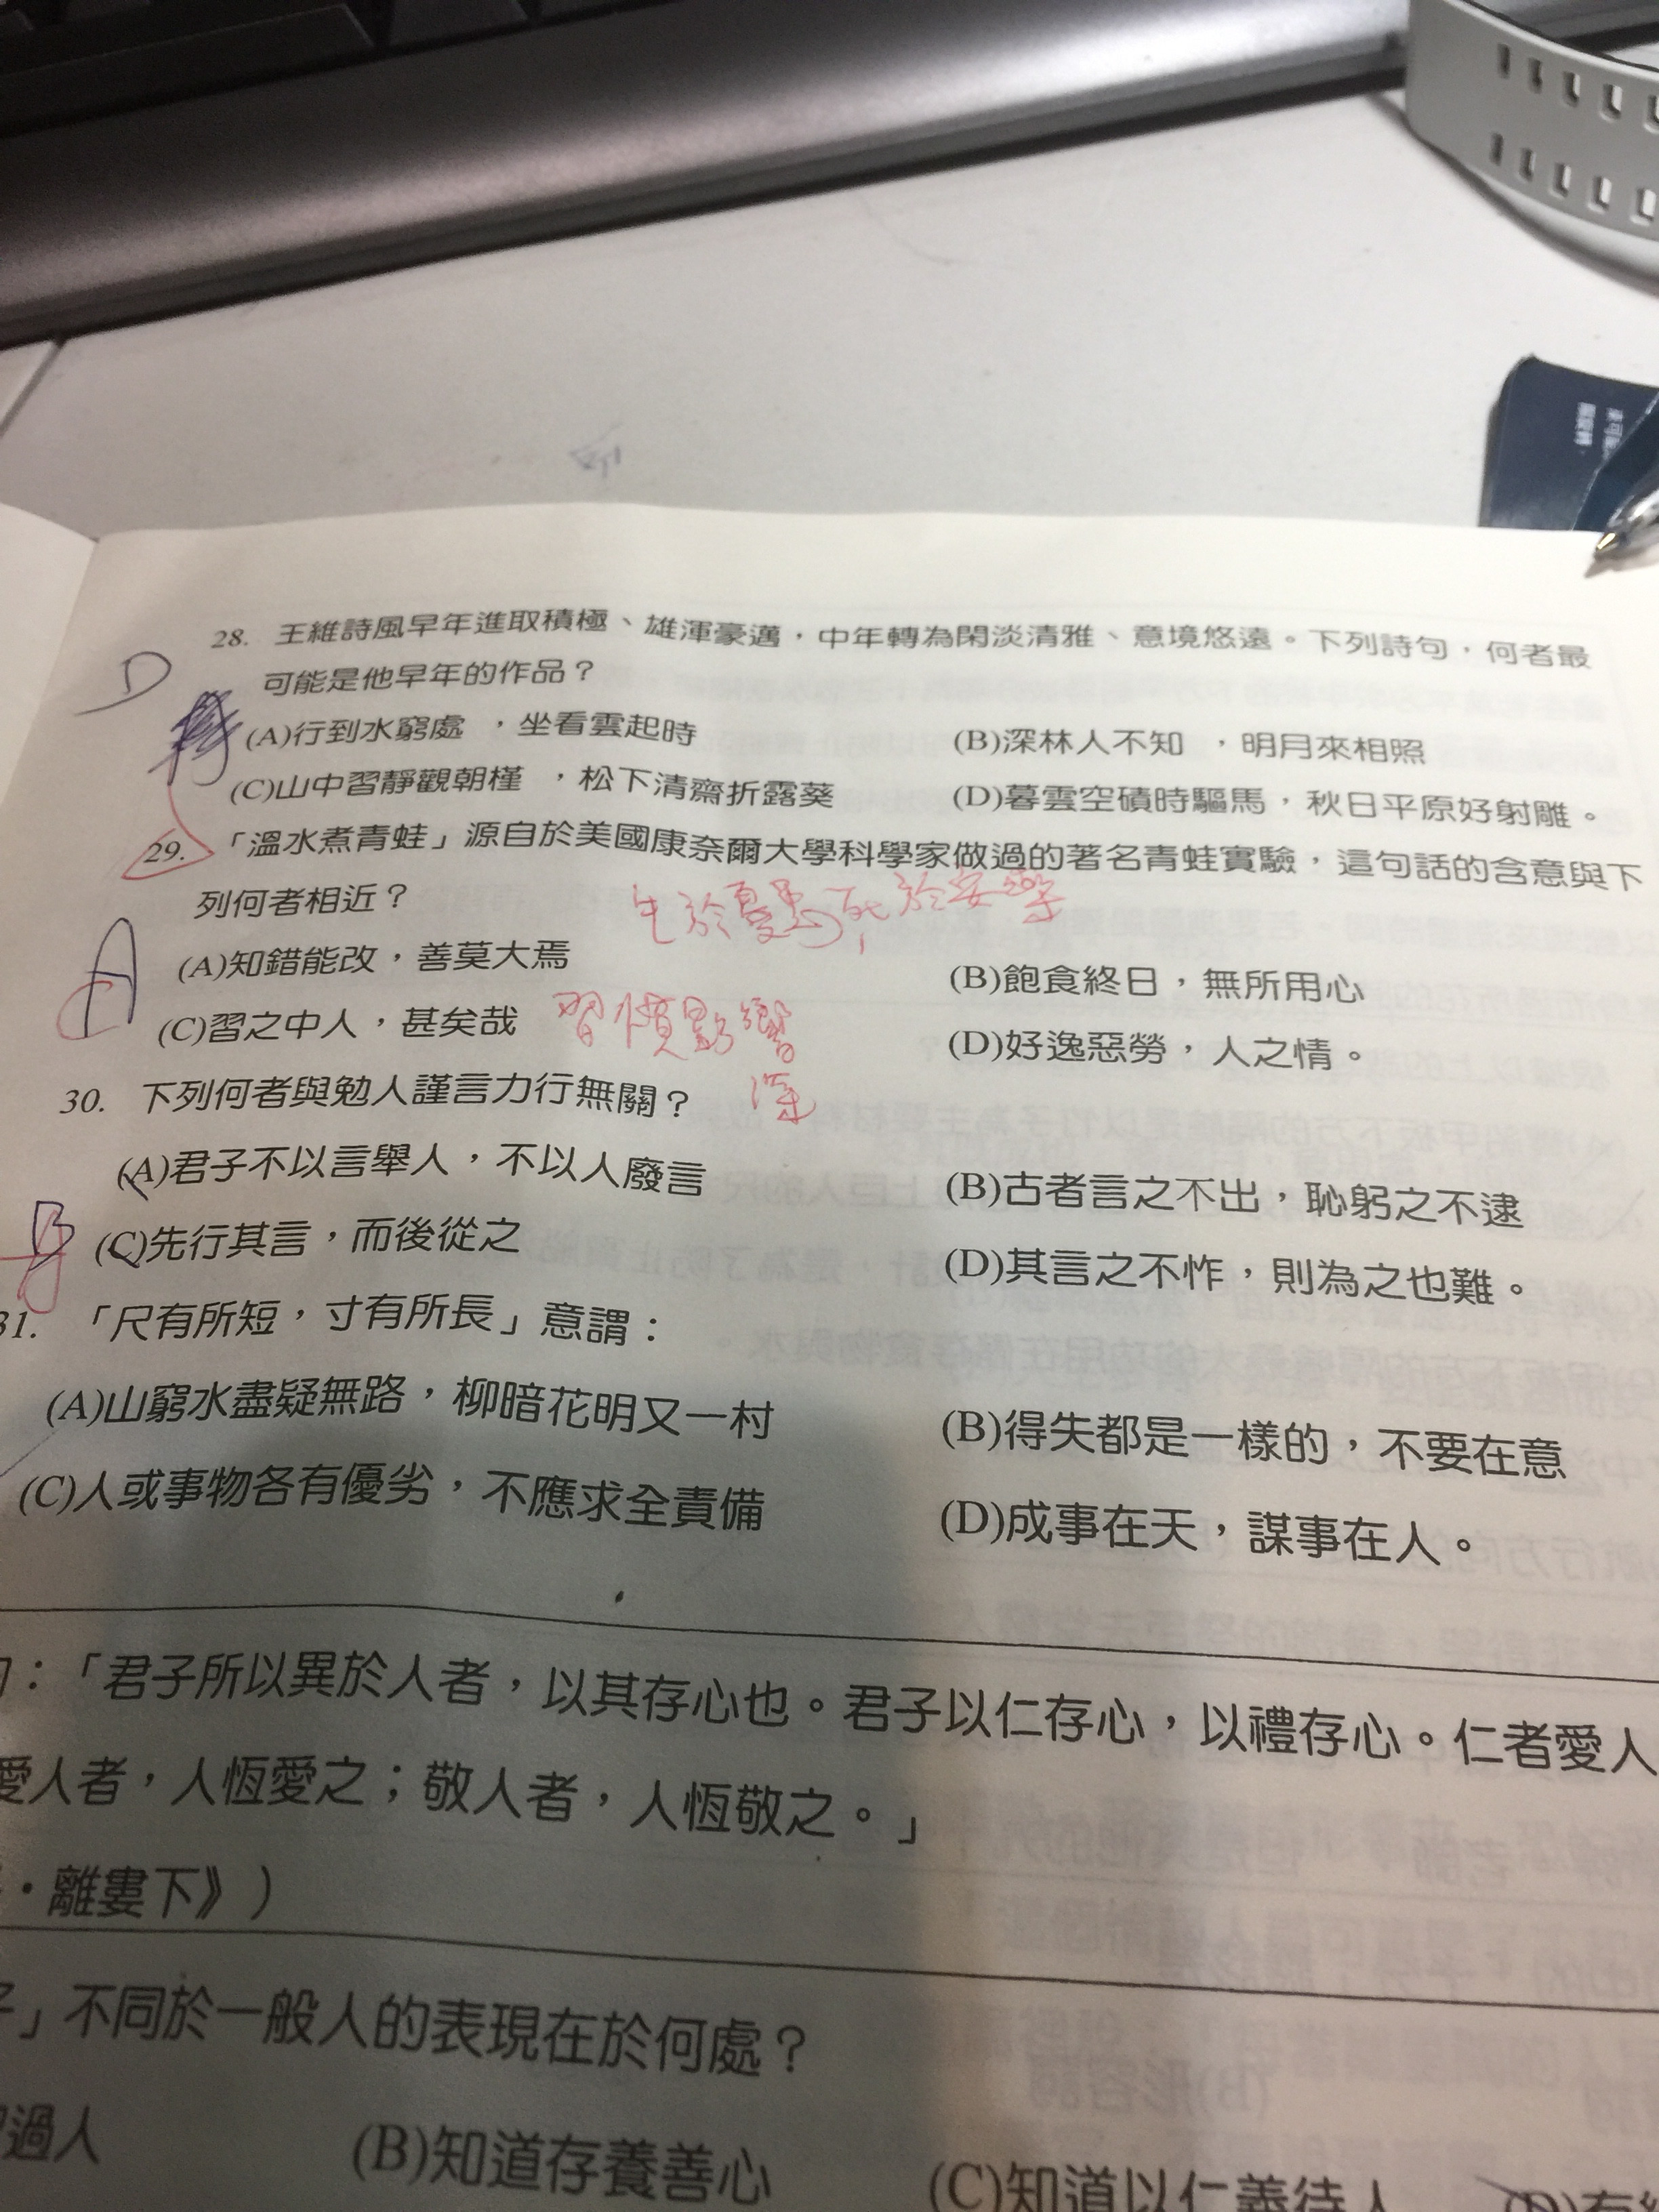 28. 王維詩風早年進取積極、雄渾豪邁，中年轉為閑淡清雅、意境悠遠。下列詩句，何者最
D
可能是他早年的作品？
(A)行到水窮處 ，坐看雲起時 (B)深林人不知 ，明月來相照
(C)山中習靜觀朝槿 ，松下清齋折露葵 (D)暮雲空磧時驅馬，秋日平原好射雕。
29. 「溫水煮青蛙」源自於美國康奈爾大學科學家做過的著名青蛙實驗，這句話的含意與下
列何者相近？
生於憂患死於安樂
A
C
(A)知錯能改，善莫大焉 (B)飽食終日，無所用心
(C)習之中人，甚矣哉 習慣影響 (D)好逸惡勞，人之情。
深
30. 下列何者與勉人謹言力行無關？
(A)君子不以言舉人，不以人廢言 (B)古者言之不出，恥躬之不逮
B
(C)先行其言，而後從之 (D)其言之不怍，則為之也難。
31. 「尺有所短，寸有所長」意謂：
(A)山窮水盡疑無路，柳暗花明又一村 (B)得失都是一樣的，不要在意
(C)人或事物各有優劣，不應求全責備 (D)成事在天，謀事在人。
：「君子所以異於人者，以其存心也。君子以仁存心，以禮存心。仁者愛人
愛人者，人恆愛之；敬人者，人恆敬之。」
・離婁下》）
」不同於一般人的表現在於何處？
過人 (B)知道存養善心 (C)知道以仁義待人